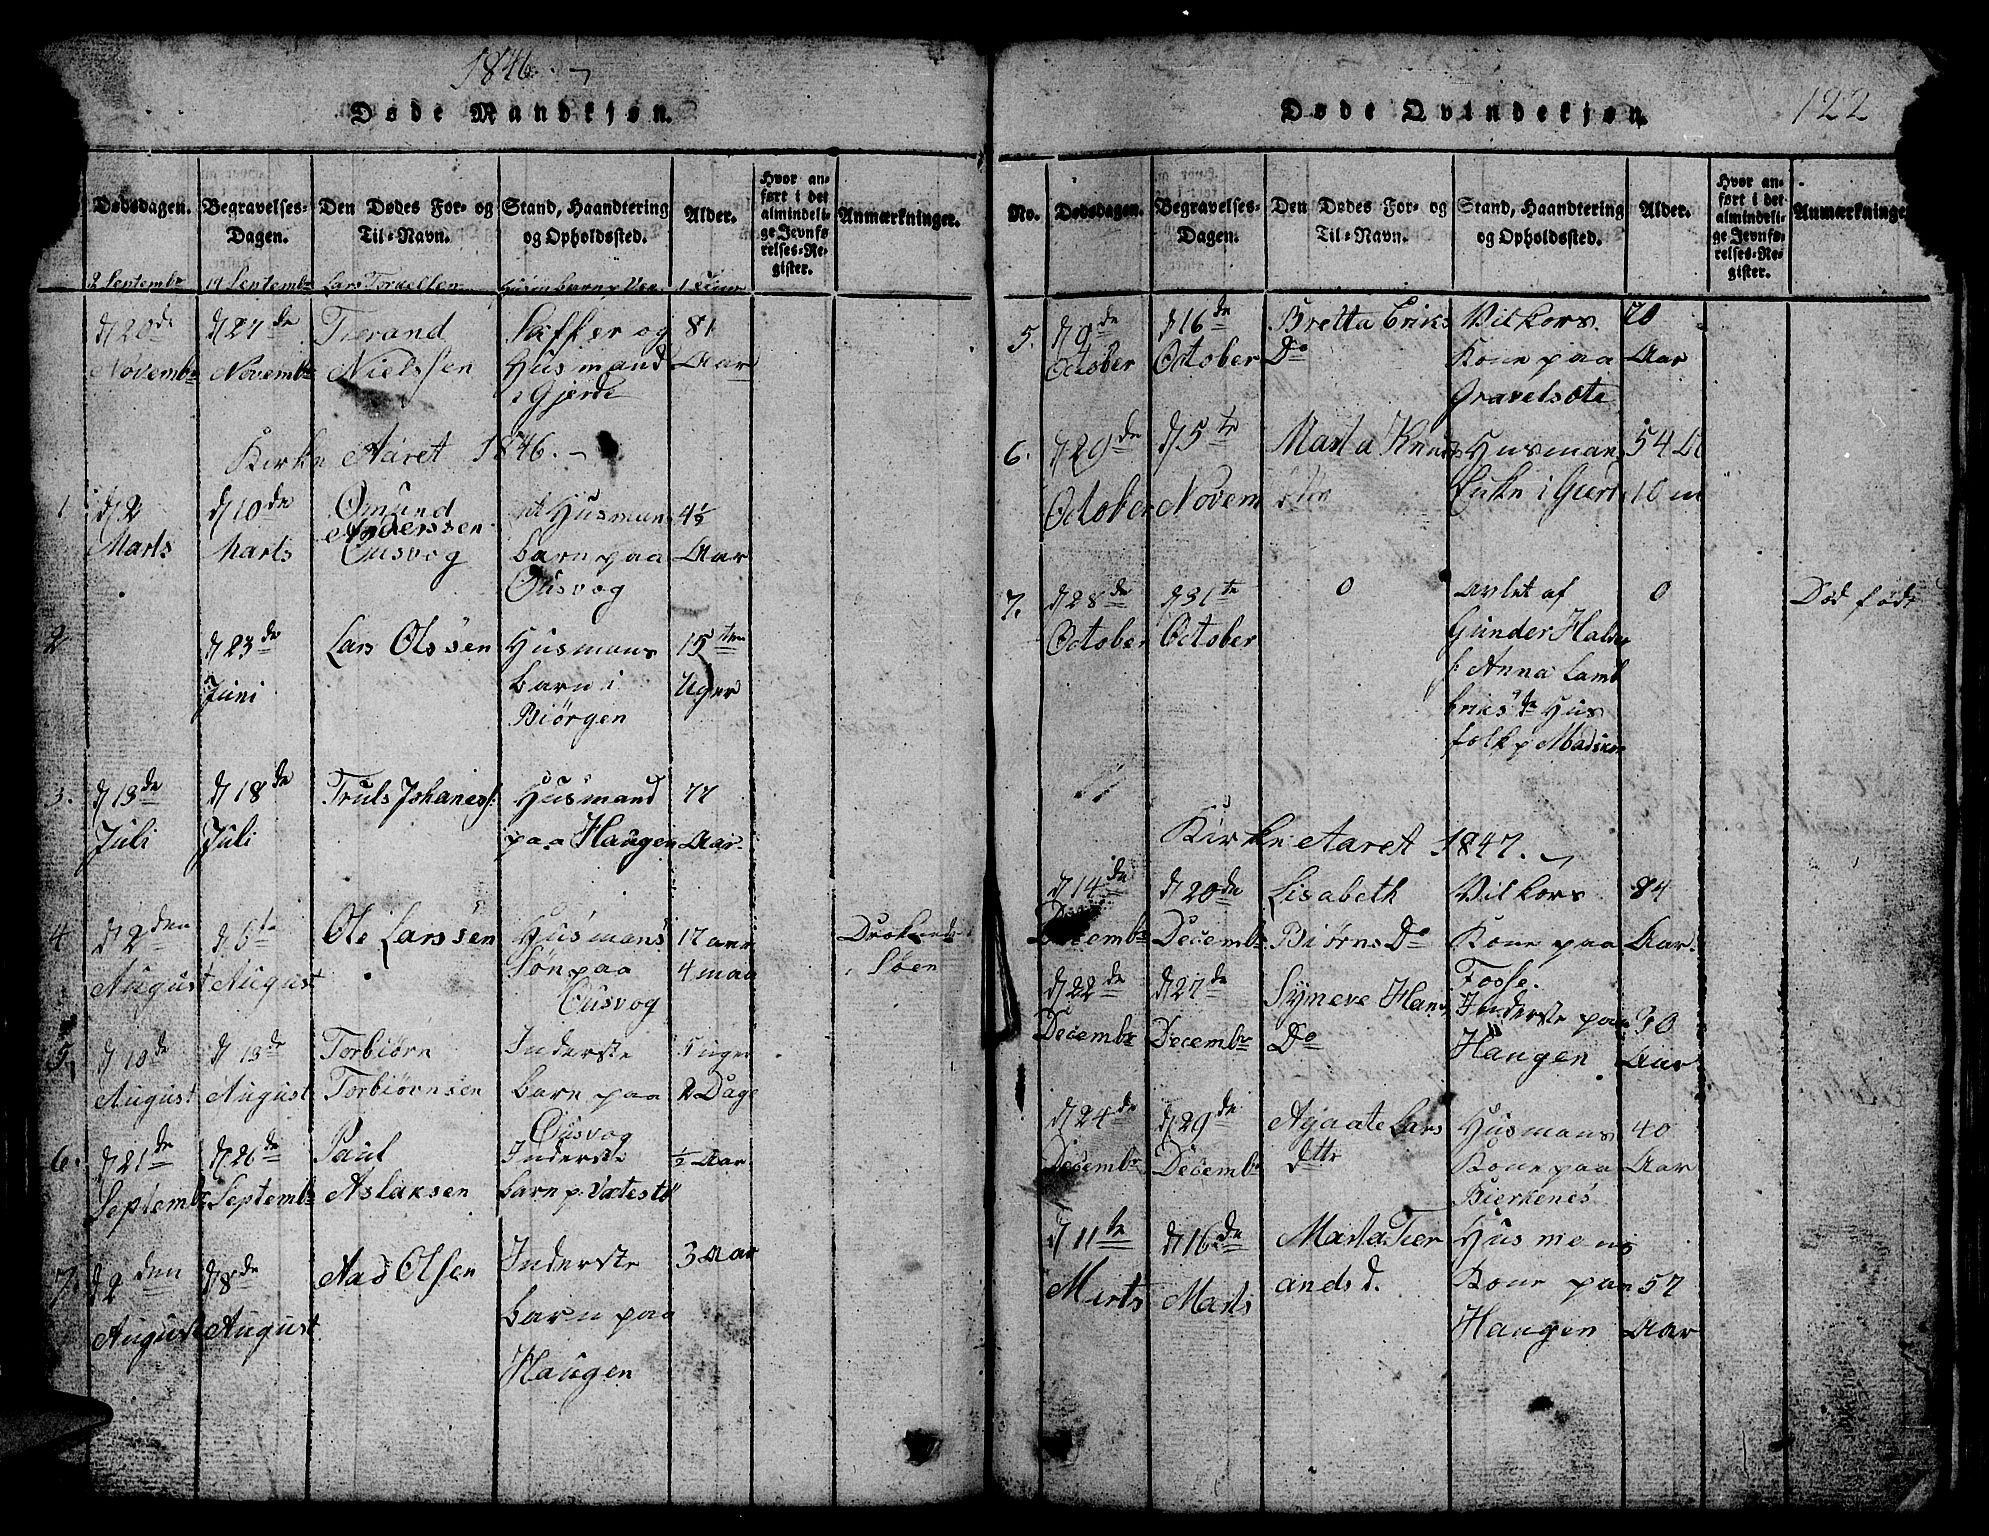 1846.
Døde Mandkjøn.
Dødsdagen.
Begravelses-
Dagen.
Den Dødes For- og
Til-Navn.
Stand, Haandtering
og Opholdssted.
Alder.
Hvor an-
ført i det
almindeli-
ge Jevnfø-
relses-Re-
gister.
Anmærkninger.
2 Septembr 14 Septembr Lars
d 20de
Novembr
d 27de
Novembr
Tierand
Nielssen
og
Husmand
i Gjerde
81
Aar
Kirke Aaret 1846.
1
d 2
Marts
d 10de
Marts
Omund
Anderssen
Ousvog
Husmans
barn paa
Ousvog
4½
Aar
2
d 23de
Juni
Lars Olssen
Husmans
barn i
Biørgen
15ten
Uger
3.
d 13de
Juli
d 18de
Juli
Truls Johaness.
Husmand
paa Haugen
77
Aar
4
d 2den
August
d 6te
August
Ole Larssen
Husmans
Søn paa
Ousvog
17 aar
4 maa
Søen
5,
d 10de
August
d 13de
August
Torbiørn
Torbiørnsen
Inderste
barn paa
Ousvog
5 uger
2 Dage
6.
d 21de
Septembr
d 26de
Septembr
Paul
Aslaksen
Inderste
barn p. Vatestø
½ Aar.
7.
d 2den
August
d 8de
August
Aad Olsen
Inderste
barn paa
Haugen
3 Aar
Døde Qvindekjøn.
122
No.
Dødsdagen.
Begravelses-
Dagen.
Den Dødes For- og
Til-Navn.
Stand, Haandtering
og Opholdssted.
Alder.
Hvor an-
ført i det
almindeli-
ge Jevnfø-
relses-Re-
gister.
Anmærkninge
5.
d 9de
October
d 16de
October
Bretta Eriks
Do
Vilkors
Kone paa
Gravelsæte
70
Aar
6.
d 29de
October
d 5te
Novem
Marta Knuds
Husman
Enke i Gierd
54 A
10 m
7.
d 28de
October
d 31te
October
0
avlet af
Gunder Halde
Anna Lamb
Eriks de Hus
folk p Madsen
0
Død født
Kirke Aaret 1847.
d 14de
Decembr
d 20de
Decembr
Lisabeth
Biørns Do
Vilkors
Kone paa
Fosse.
84
Aar.
d 22de
Decembr
d 27de
Decembr
Syneve Hans
Do
Inderste paa
Haugen
30
Aar
d 24de
Decembr
d 29de
Decembr
Agaate Lars
dttr
Husmans
Kone paa
Bierkenes
40
Aar
d 11te
Marts
d 16de
Marts
Marta Tier
ands d.
Husmans
Kone paa
Haugen
57
Aar